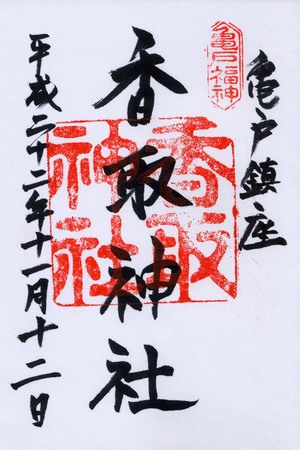 亀戸福神
亀戸鎮座
香取神社
香取神社
平成二十二年十一月十二日